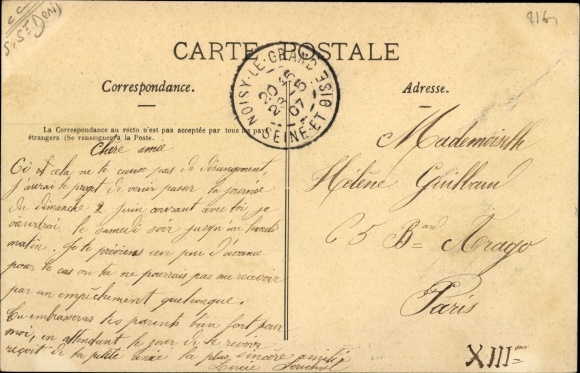 CC
S. St Denis
816
CARTE POSTALE
Correspondance.
Adresse.
La Correspondance au recto n'est pas acceptée par tous les pays
étrangers (Se renseigner à la Poste.
NOISY-LE-GRAND
20
23-5
07
SEINE-ET-OISE
Chère amie
Si cela ne te cause pas de dérangement,
j'aurai le projet de venir passer la journée
du dimanche 2 juin courant avec toi je
viendrai le samedi soir jusqu'au lundi
matin. Je te préviens un peu d'avance
pour le cas ou tu ne pourrais pas me recevoir
par un empêchement quelconque.
Tu embrasseras tes parents bien fort pour
moi, en attendant le jour de te revoir
reçoit de ta petite amie la plus sincère amitié
Lucie
Mademoiselle
Hélène
65 Bard Arago
Paris
XIII